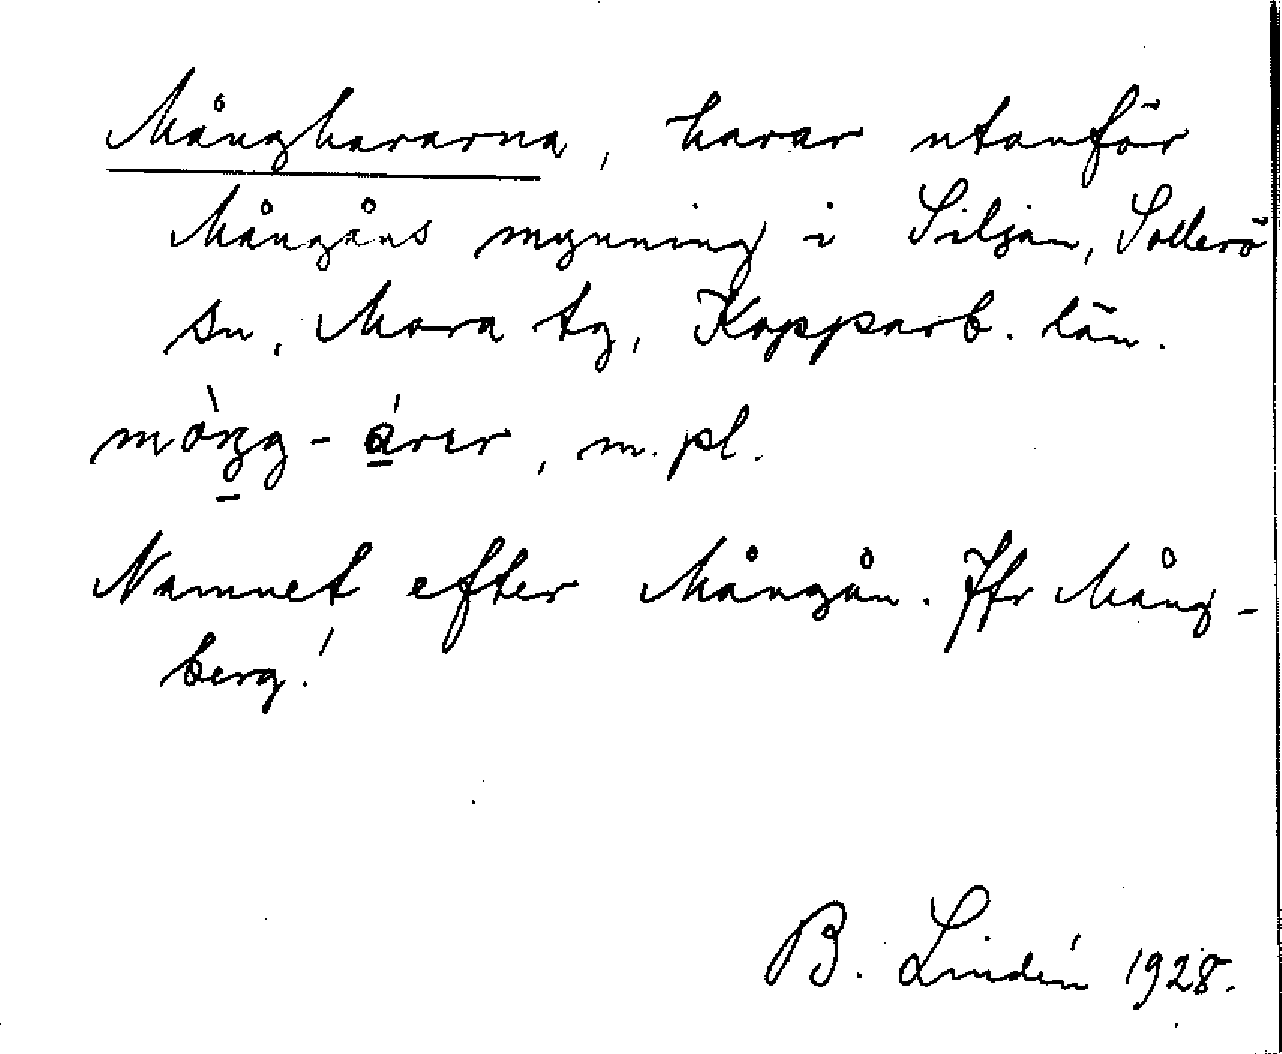 Månghararna, harar utanför
Mångåns mynning i Siljan, Sollerö
sn, Mora tg, Kopparb. län.
m. pl.
Namnet efter Mångån. Jfr Mång-
berg!
B. Lindén 1928.